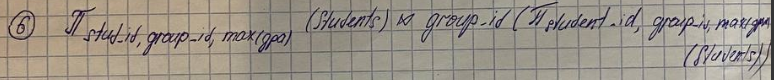 ⑥ π stud_id, group_id, max(gpa) (Students) ⋈ group_id (π student_id, group_id, max(gpa)
(Students))